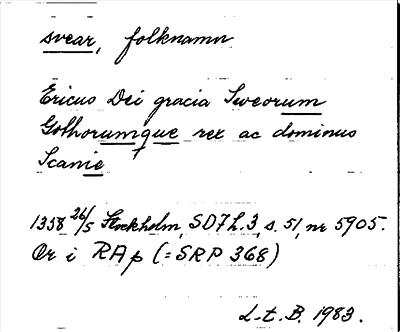 svear, folknamn
Ericus Dei gracia Sweorum
Gothorumque rex ac dominus
Scanie
1358 26/5 Stockholm, SD 7 h. 3, s. 51, nr 5905.
Or i RAp (= SRP 368)
L-t. B. 1983.